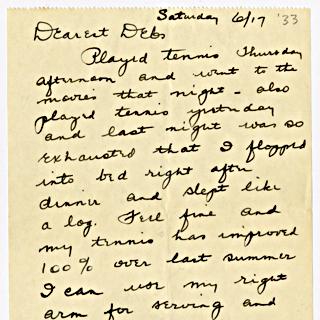 Saturday 6/17 '33
Dearest Debs
Played tennis Thursday
afternoon and went to the
movies that night - also
played tennis yesterday
and last night was so
exhausted that I flopped
into bed right after
dinner and slept like
a log. Feel fine and
my tennis has improved
100% over last summer
I can use my right
arm for serving and